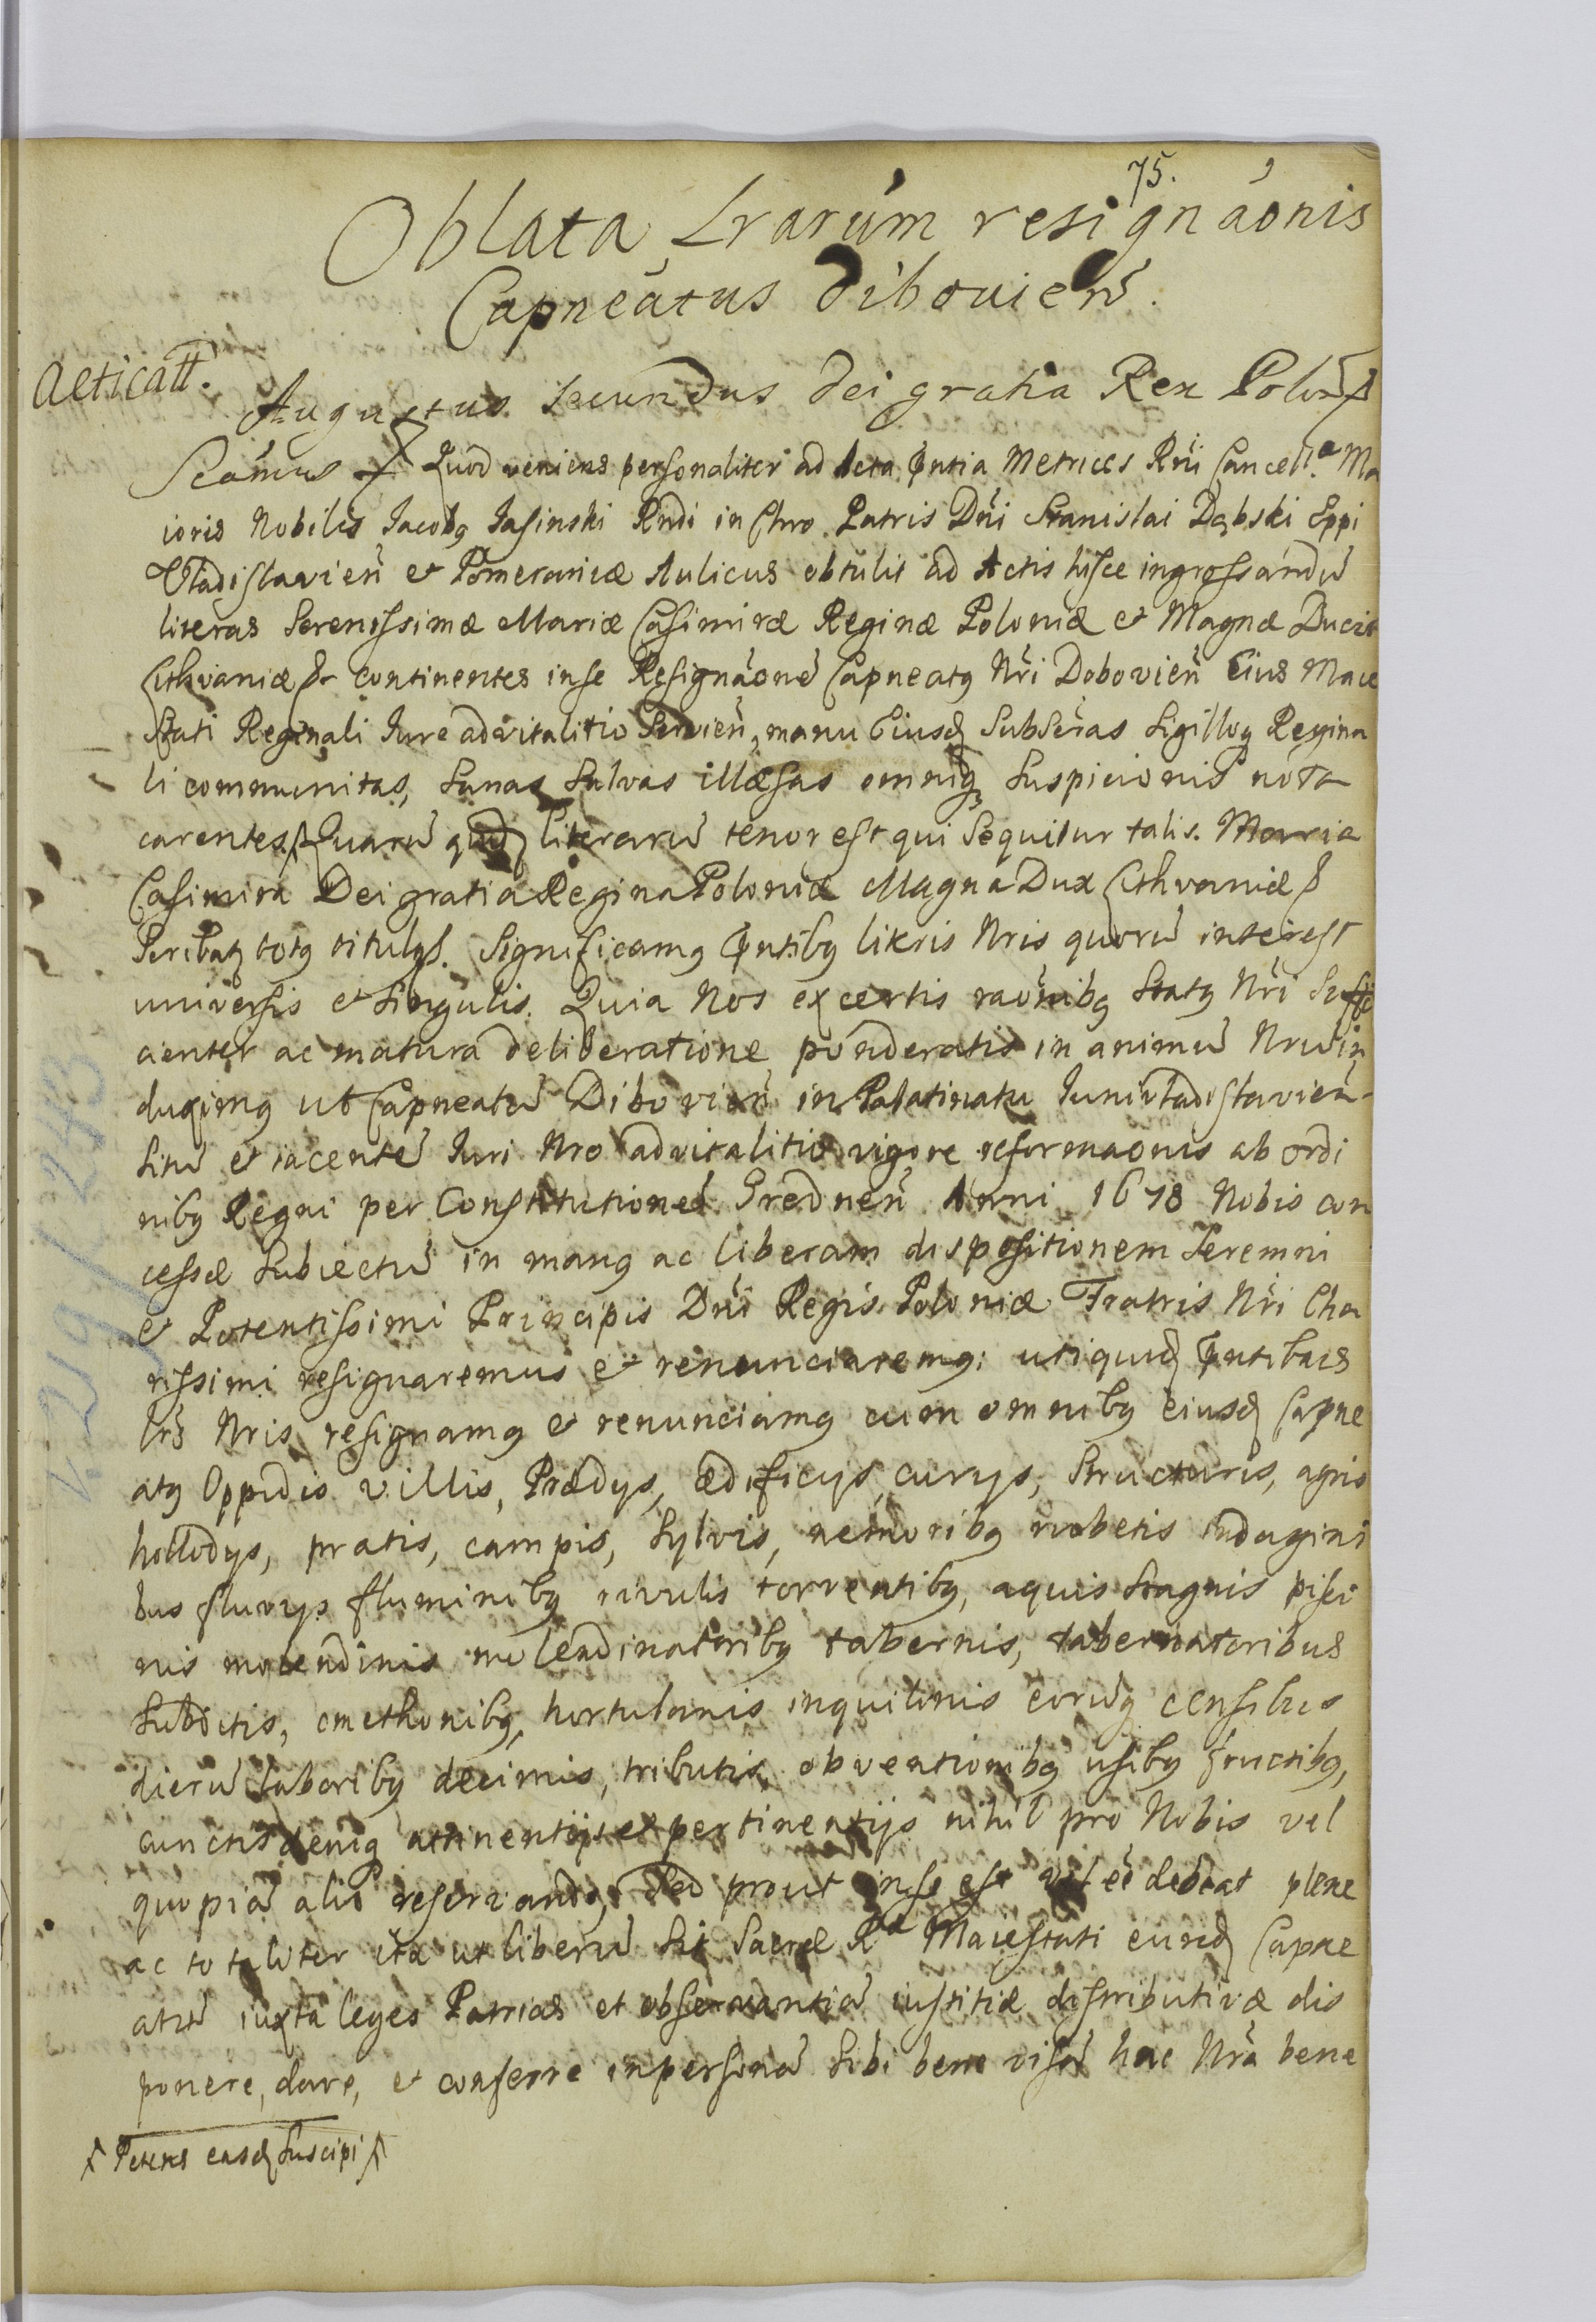 75.
Oblata Lrarum resignaonis
Capneatus Diboviens.
Acticatt.
Augustus Secundus Dei gratia Rex Polon &
Scamus & Quod veniens personaliter ad Acta Pntia Metrices Rni Cancell.a Ma
ioris Nobilis Jacobq Jasinski Rndi in Chro Patris Dni Stanislai Dąbski Eppi
Vladislavien et Pomeraniæ Aulicus obtulit ad Actis hisce ingrossandu
literas Serenissimæ Mariæ Casimiræ Reginæ Poloniæ et Magnæ Ducis
Lithvaniæ & continentes in se Resignaone Capneatq Nri Dobovien Eius Maie
stati Reginali Iure advitalitio Servien, manu Eiusd Subscras Sigilloq Regina
li communitas, Sanas Salvas illæsas omniq Suspicionis nota
carentes. Quaru quid literaru tenor est qui sequitur talis. Maria
Casimira Dei gratia Regina Poloniæ Magna Dux Lithvaniæ &
Scribatq totq titulq. Significamq Pntibq literis Nris quoru interest
universis et singulis. Quia Nos ex certis raonibq Statq Nri Suffi
cienter ac matura deliberatione ponderatis in animu Nru in
duximq ut Capneatu Dibovien in Palatinatu Juniwladislavien
situ et iacente Iuri Nro advitalitio vigore reformaonis ab ordi
nibq Regni per Constitutiones Grodnen Anni 1678 Nobis con
cessæ subiectu in manq ac liberam dispositionem Seremni
et Potentissimi Principis Dni Regis Poloniæ Fratris Nri Cha
rissimi resignaremus et renunciaremq: uti quid Pntibus
lrs Nris resignamq et renunciamq cum omnibq eiusd Capne
atq Oppidis villis, Prædys, ædificys, curys, Structuris, agris
pratis, campis, Sylvis, nemoribq rubetis indagini
bus fluvys fluminibq rivulis torrentibq, aquis stagnis pisci
nis molendinis molendinatoribq tabernis, tabernatoribus
Subditis, cmethonibq, hortulanis inquilinis eoruq censibus
dieru laboribq decimis, tributis, obventionibq usibq fructibq,
cunctis deniq attinentijs et pertinentijs nihil pro Nobis vel
quopia alio reservando, Sed prout in se est vel ee debeat plene
ac totaliter ita ut liberu sit Sacræ Ra Maiestati eund Capne
atu iuxta leges Patrias et observantia iustitiæ distributivæ dis
ponere, dare, et conferre in persona Sibi bene visa hac Nra bene
Petens easd suscipi